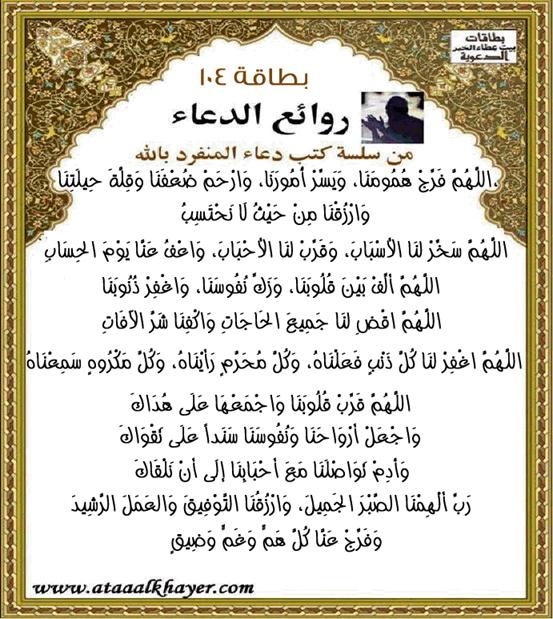 بطاقات
بيت عطاء الخير
الدعوية
بطاقة ١٠٤
روائع الدعاء
من سلسة كتب دعاء المنفرد بالله
،اللَّهُمَّ فَرِّجْ هُمُومَنَا، وَيَسِّرْ أُمُورَنَا، وَارْحَمْ ضُعْفَنَا وَقِلَّةَ حِيلَتِنَا
وَارْزُقْنَا مِنْ حَيْثُ لَا نَحْتَسِبُ
اللَّهُمَّ سَخِّرْ لنَا الْأَسْبَابَ، وَقَرِّبْ لنَا الْأَحْبَابَ، وَاعْفُ عَنَّا يَوْمَ الحِسَابِ
اللَّهُمَّ أَلِّفْ بَيْنَ قُلُوبِنَا، وَزَكِّ نُفُوسَنَا، وَاغْفِرْ ذُنُوبَنَا
اللَّهُمَّ اقْضِ لنَا جَمِيعَ الحَاجَاتِ وَاكْفِنَا شَرَّ الآفَاتِ
اللَّهُمَّ اغْفِرْ لنَا كُلَّ ذَنْبٍ فَعَلْنَاهُ، وَكُلَّ مُحَرَّمٍ رَأَيْنَاهُ، وَكُلَّ مَكْرُوهٍ سَمِعْنَاهُ
اللَّهُمَّ قَرِّبْ قُلُوبَنَا وَاجْمَعْهَا عَلَى هُدَاكَ
وَاجْعَلْ أَرْوَاحَنَا وَنُفُوسَنَا سَنَداً عَلَى تَقْوَاكَ
وَأَدِمْ تَوَاصُلَنَا مَعَ أَحْبَابِنَا إِلَى أَنْ نَلْقَاكَ
رَبِّ أَلْهِمْنَا الصَّبْرَ الجَمِيلَ، وَارْزُقْنَا التَّوْفِيقَ وَالعَمَلَ الرَّشِيدَ
وَفَرِّجْ عَنَّا كُلَّ هَمٍّ وَغَمٍّ وَضِيقٍ
www.ataaalkhayer.com